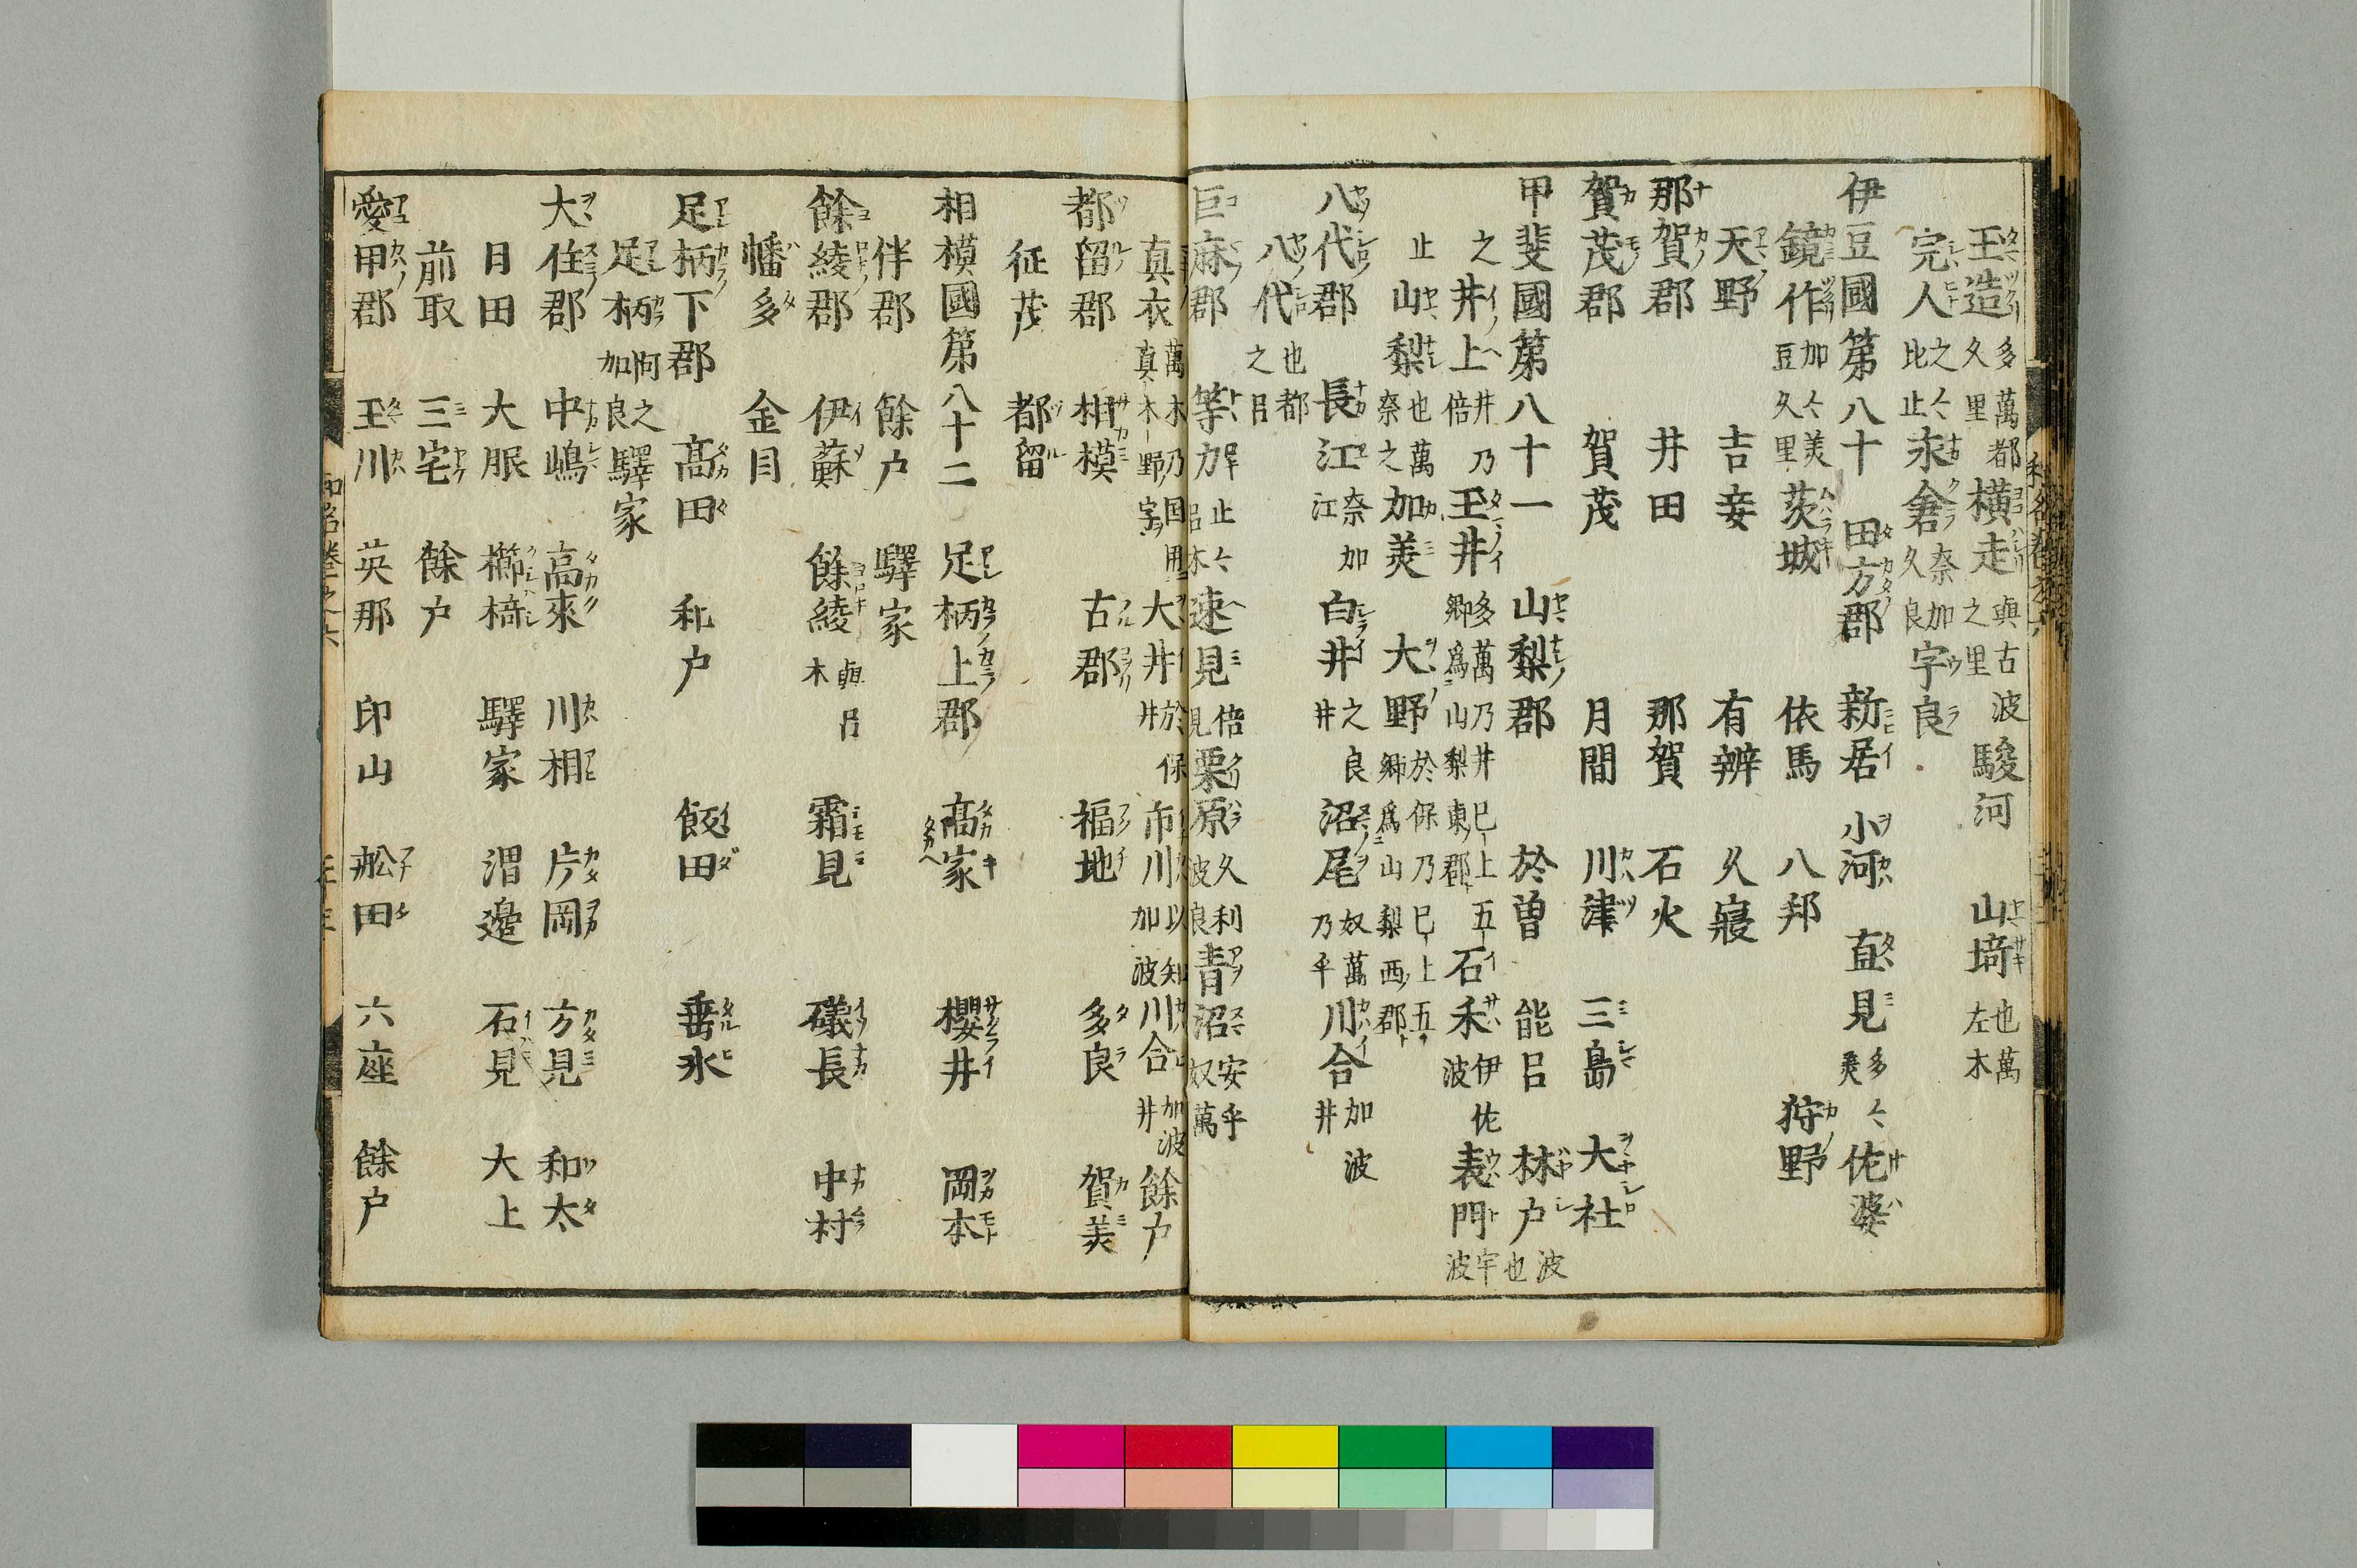 玉造多萬都久里 横走與古波之里 駿河 山埼也萬左木
完人之〻比止 永倉奈加久良 宇良
伊豆國第八十 田方郡 新居 小河 直見多〻美 佐婆
鏡作加〻美豆久里 茨城 依馬 八邦 狩野
天野 吉妾 有辨 久寢
那賀郡 井田 那賀 石火
賀茂郡 賀茂 月間 川津 三島 大社
甲斐國第八十一 山梨郡 於曽 能呂 林戸波也之
井上井乃倍 玉井多萬乃井 石禾伊佐波 表門宇波止
山梨也萬奈之 加美 大野於保乃
八代郡 長江奈加江 白井之良井 沼尾奴萬乃乎 川合加波井
八代也都之呂
巨麻郡 等力止〻呂木 速見倍見 栗原久利波良 青沼安乎奴萬
真衣萬木乃 大井於保井 市川以知加波 川合加波井 餘戸
都留郡 相模 古郡 福地 多良 賀美
征茂 都留
相模國第八十二 足柄上郡 高家 櫻井 岡本
伴郡 餘戸 驛家
餘綾郡 伊蘇 餘綾與呂木 霜見 礒長 中村
幡多 金目
足柄下郡 高田 和戸 飯田 垂水
足柄阿之加良 驛家
大住郡 中嶋 高來 川相 片岡 方見 和太
日田 大服 櫛椅 驛家 渭邊 石見 大上
前取 三宅 餘戸
愛甲郡 玉川 英那 印山 舩田 六座 餘戸